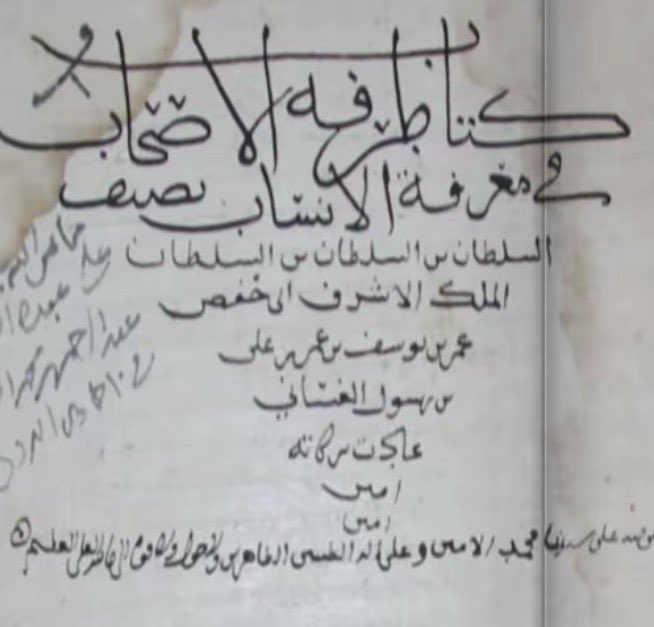 كتاب طرفة الاصحاب
في معرفة الانساب تصنيف
السلطان بن السلطان بن السلطان
الملك الاشرف ابى حفص
عمر بن يوسف بن عمر بن على
بن رسول الغساني
عادت بركاته
امين
امين
على سيدنا محمد الامين وعلى اله الطاهرين ولا حول ولا قوة الا بالله العلى العظيم